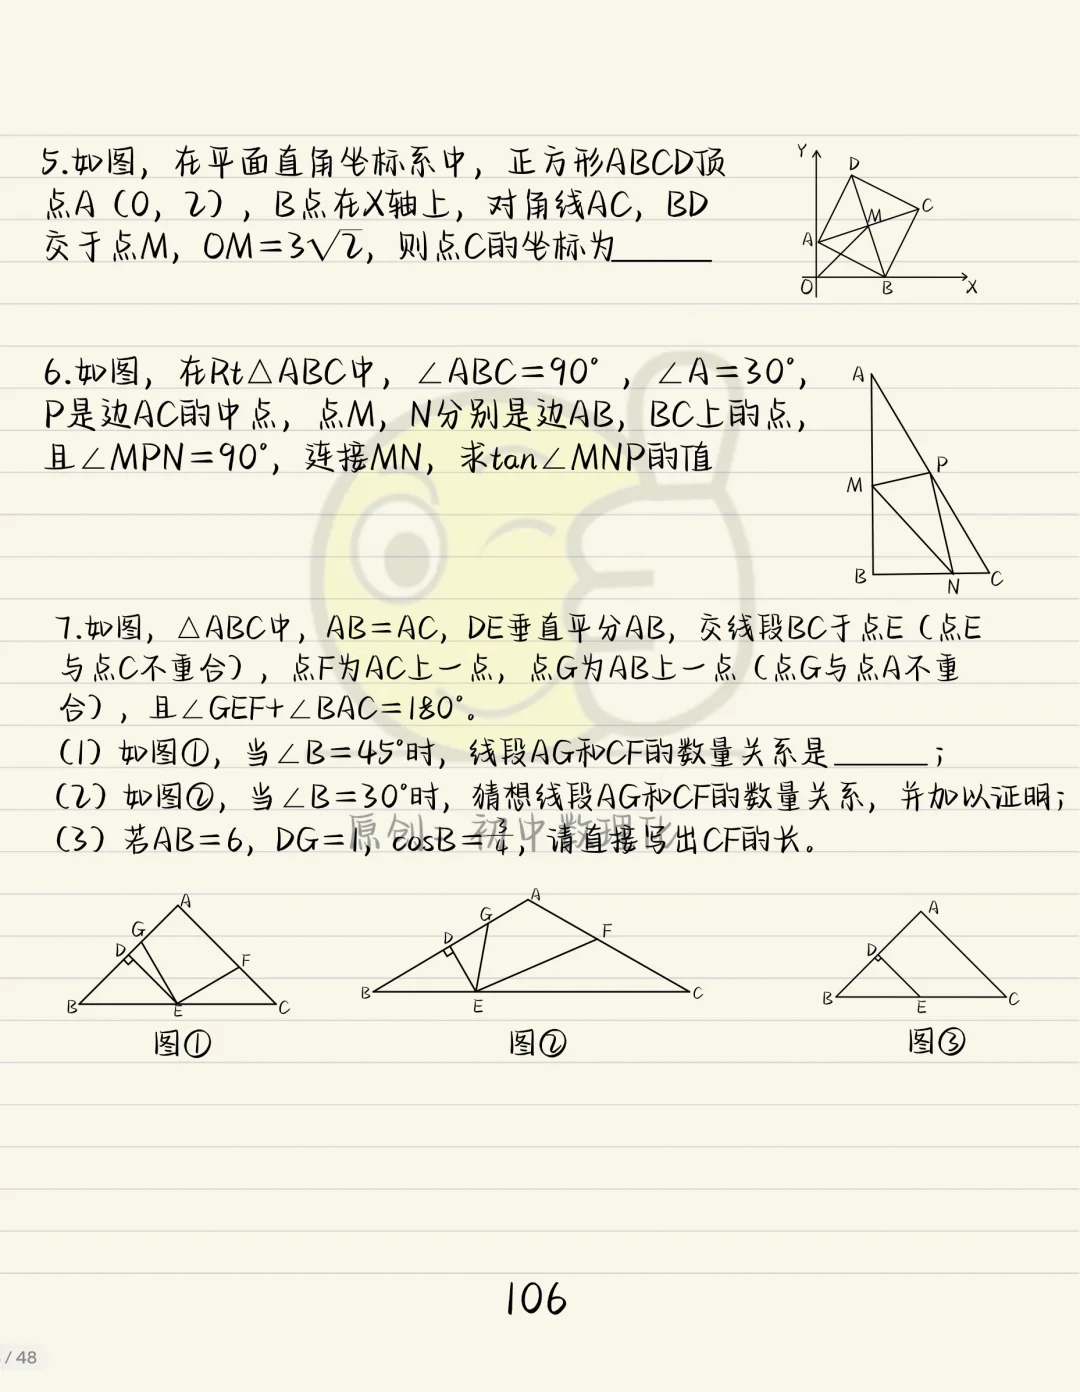 5.如图，在平面直角坐标系中，正方形ABCD顶
点A（0，2），B点在X轴上，对角线AC，BD
交于点M，OM=3√2，则点C的坐标为______
Y
D
C
M
A
O
B
X
6.如图，在Rt△ABC中，∠ABC=90°，∠A=30°，
P是边AC的中点，点M，N分别是边AB，BC上的点，
且∠MPN=90°，连接MN，求tan∠MNP的值
A
P
M
B
N
C
7.如图，△ABC中，AB=AC，DE垂直平分AB，交线段BC于点E（点E
与点C不重合），点F为AC上一点，点G为AB上一点（点G与点A不重
合），且∠GEF+∠BAC=180°。
（1）如图①，当∠B=45°时，线段AG和CF的数量关系是______；
（2）如图②，当∠B=30°时，猜想线段AG和CF的数量关系，并加以证明；
（3）若AB=6，DG=1，cosB=3/4，请直接写出CF的长。
原创 初中数理化
A
G
D
F
B
E
C
图①
A
G
D
F
B
E
C
图②
A
D
B
E
C
图③
106
/ 48